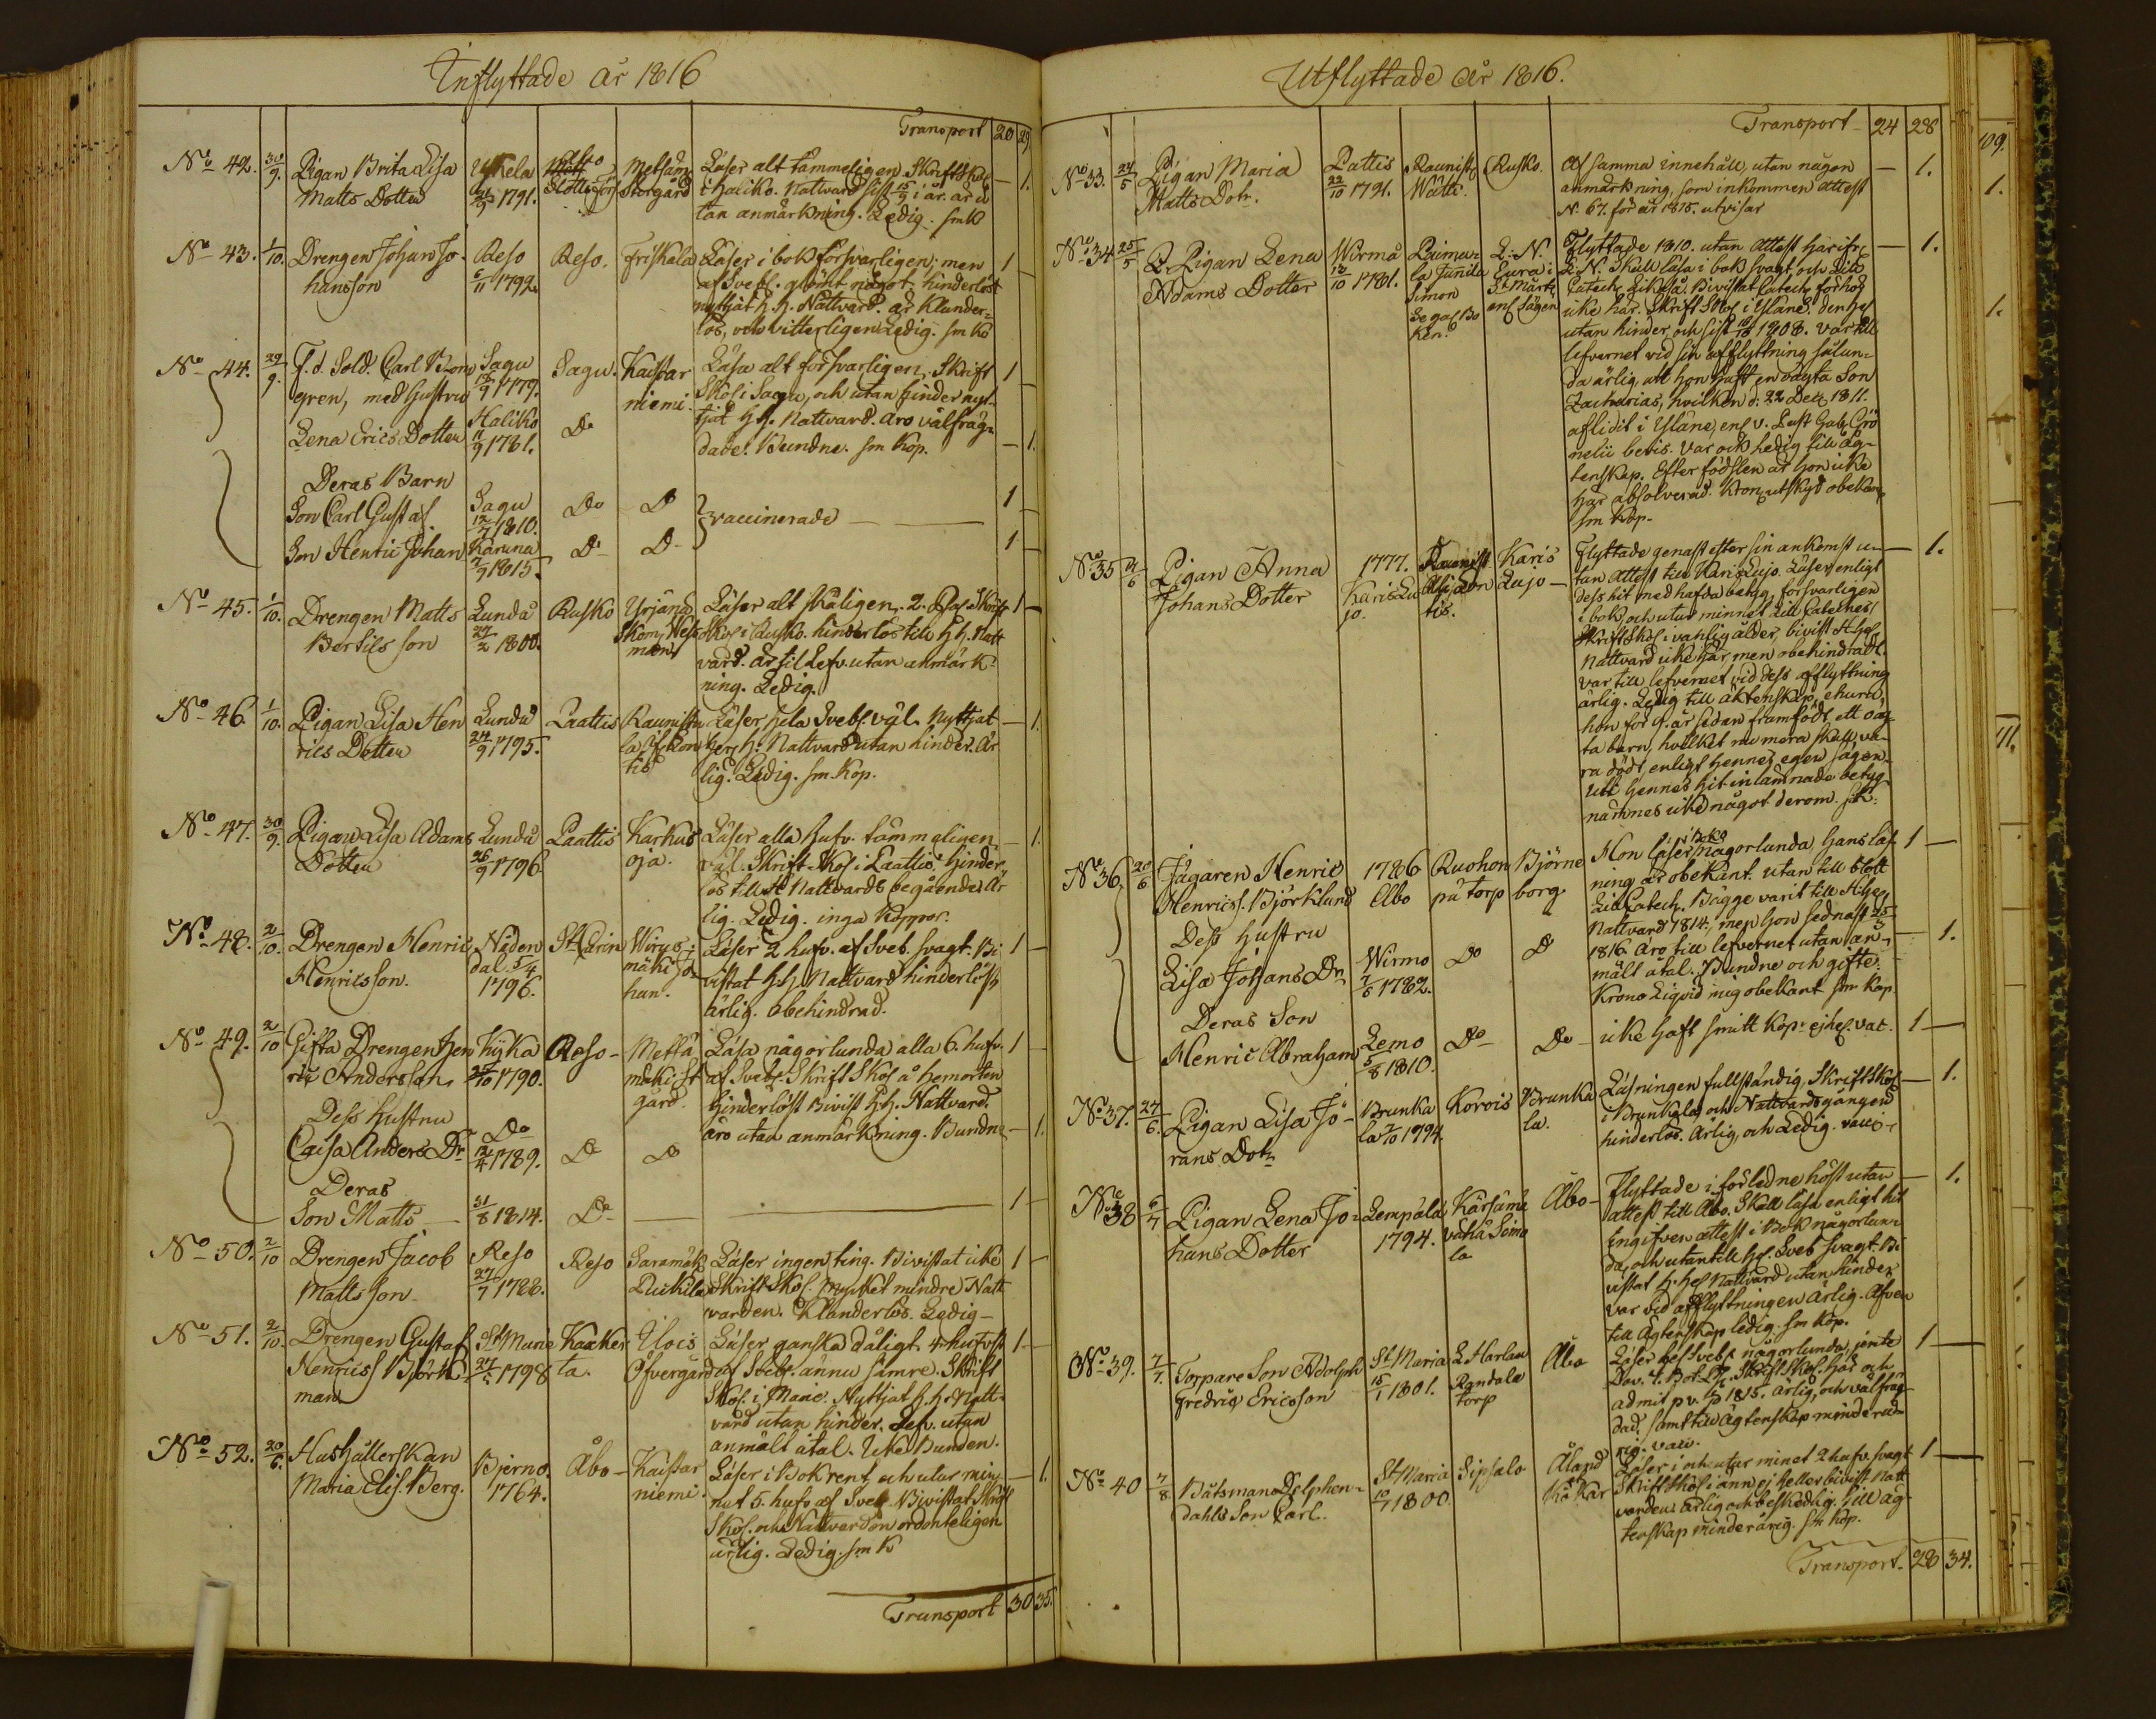 Inflyttade år 1816
Transport 20 29
No 42. 30/9. Pigan Brita Lisa
Matts Dotter
Uskela
1791.
Metsäm
Storgård
Läser alt tämmeligen Skriftskol
i Haliko. Nattvard sist 15/9 i år. är u
tan anmärkning. Ledig. smk
1.
No 43. 1/10. Drengen Johan Jo-
hansson
Reso
6/11 1792.
Reso.
Friskala
Läser i bok försvarligen; men
af Svebs. glömt något. hinderlöst
nyttjat H. H. Nattvard. är klander=
lös, och vitterligen Ledig. sm k
1
No 44. 29/9. F. d. Sold. Carl Blom
gren, med Hustru
Sagu
15/9 1779.
Sagu.
Kaistar
niemi.
Läsa alt försvarligen, Skrift
Skol. i Sagu, och utan hinder nyt-
tjat H H. Nattvard. äro välfräg-
dade. Bundne. sm Kop.
1
Lena Erics Dotter
Haliko
11/9 1781.
Do
1.
Deras Barn
Son Carl Gustaf
Sagu
12/7 1810.
Do
D
vaccinerade
1
Son Henric Johan
Karuna
2/9 1815.
Do
D
1
No 45. 1/10. Drengen Matts
Bertils son
Lundå
27/2 1800.
Rusko
Läser alt skäligen. 2. Skrift
Skol i Rusko. hinderlös till H H. Natt
vard. är til Lefv. utan anmärk
ning. Ledig.
1
No 46. 1/10. Pigan Lisa Hen
rics Dotter
Lundå
24/9 1795.
Paattis
Läser hela Svebs. väl. Nyttjat
H: Nattvard utan hinder. Är
lig. Ledig. sm. Kop.
1.
No 47. 30/9 Pigan Lisa Adams
Dotter
Lundå
26/9 1796
Paattis
Karhus
oja.
Läser alla hufv. tämmeligen
väl. Skrift Skol i Paattis. hinder
lös till H Nattvards begående. Är
lig. Ledig. inga Koppor.
1.
No 48. 2/10. Drengen Henric
Henricsson.
Nåden
dal. 5/4
1796.
St Carin
mäki Jo
han.
Läser 2 hufv. af Sveb. svagt. Bi
vistat H H. Nattvard hinderlöst
ärlig. obehindrad.
1
No 49. 2/10 Gifta Drengen Hen
ric Andersson
1790.
Reso
Mettä
mäki St
gård.
Läsa någorlunda alla 6. hufv.
af Svebs. Skrift Skol å hemorten
hinderlöst Bivist H H. Nattvard.
äro utan anmärkning. Bundne
1
Dess Hustru
Caisa Anders Dr
Do
12/4 1789.
Do
Do
1.
Deras
Son Matts
31/8 1814.
Do
1
No 50. 2/10 Drengen Jacob
Matts son
Reso
27/7 1788.
Reso
Saramäk
Puckila
Läser ingen ting. Bivistat icke
Skrift Skol. mycket mindre Natt
varden. Klanderlös. Ledig
1
No 51. 2/10. Drengen Gustaf
Henricss Björk
man
St Marie
1798
Kaaker
ta.
Ylois
Öfvergård
Läser ganska dåligt. 4 hufvst
af Svebs. ännu sämre. Skrift
Skol. i Marie. Nyttjat H. H. Natt-
vard utan hinder. Lefv. utan
anmält åtal. Icke Bunden.
1
No 52. 20/6. Hushållerskan
Maria Elis. Berg.
Bjerno.
1764.
Åbo
Kaistar
niemi
Läser i Bok rent, och utur min
net 5. hufv. af Sveb. Bivistat Skrift
Skol. och Nattvarden ordenteligen
ärlig. Ledig. sm k
1.
Transport 30 35.
Utflyttade år 1816.
Transport 24 28
No 33. 24/5 Pigan Maria
Matts Dotr.
Pattis
22/10 1791.
Raunist
Wältti.
Rusko.
Af samma innehåll, utan någon
anmärkning, som inkommen attest
N. 67. för år 1815. utvisar
1.
No 34 25/5 Pigan Lena
Adams Dotter
Wirmå
12/10 1781.
Raima=
la Junila
Simon
L: N.
Eura i
St Märte
enl. sägen
Flyttade 1810. utan attest härifr.
L: N. Skall läsa i bok svagt och Lilla
Catech likaså. Bivistat Catech förhör
icke här. Skrift Skol i Yläne. den hel
utan hinder, och sist 1808. var till
lefvernet vid sin afflyttning sålun-
da ärlig, att hon haft en oägta Son
Zacharias, hvilken d. 22 Dec. 1811.
aflidit i Yläne, enl. v. Past Gab. Cor
nelii bevis. Var ock ledig till äg-
tenskap. Efter födslen är hon icke
här absolverad. Kronutskyd obekan.
sm Kop.
1.
No 35 Pigan Anna
Johans Dotter
1777.
Karis Lu
jo.
Karis
Lujo
Flyttade genast efter sin ankomst u-
tan attest till Karis Lujo. Läser enligt
dess hit med hafda betyg, försvarligen
i bok, och utur minnet Lill Cateches
Skriftskol i vanlig ålder, bivist H. hel
Nattvard icke här, men obehindradt.
var till lefvernet vid dess afflyttning
ärlig. Ledig till äktenskap, ehuru
hon för 9. år sedan framfödt ett oäg
ta barn, hvilket nu mera skall va-
ra dödt, enligt hennes egen sägen.
Uti hennes hit inlämnade betyg
nämnes icke något derom. sm k:
1.
No 36 20/6 Jägaren Henric
Henricss. Björklund
1786
Åbo
Ruohon
pä torp
Björne
borg
Hon läser i Bok någorlunda, hans läs
ning är obekant. utan till blott
Lilla Catech. Bägge varit till H. hel
Nattvard 1814. men hon sednast
1816. äro till lefvernet utan an-
mält åtal. Bundne och gifte.
Krono Liqvid mig obekant sm Kop.
1
Dess Hustru
Lisa Johans Dr
Wirmo
1782.
Do
D
1.
Deras Son
Henric Abraham
Lemo
5/8 1810.
Do
Do
icke haft smitt Kop: ej hel. vac.
1
No 37. 27/6. Pigan Lisa Jö-
rans Dotr
Brunka
la 1794.
Korois
Brunka
la.
Läsningen fullständig. Skriftskol
i Brunkala, och Nattvardsgången
hinderlös. Ärlig, och Ledig. vacc.
1.
No 38 6/7 Pigan Lena Jo-
hans Dotter
Lempälä
1794.
Kärsämä
Åbo
Flyttade i förledne höst utan
attest till Åbo. Skall läsa enligt hit
ingifven attest i Bok någorlun
da, och utantill hel. Sveb svagt. Bi
vistat H. hel. Nattvard utan hinder
var vid afflyttningen ärlig. Äfven
till ägtenskap ledig. sm kop.
1.
No 39. 7/7 Torpare Son Adolph
Fredric Ericsson
St Maria
15/1 1801.
L Harlan
Randala
torp
Åbo
Läser hel Svebs någorlunda, jemte
Dav. 7. Bot. Ps. Skriftskol här och
admit p v. 1815. ärlig, och välfräg-
dad. samt till ägtenskap minderå-
rig. vacc.
1
No 40 7/8 Båtsman Delphen-
dahls Son Carl.
St Maria
10/7 1800
Sipsalo
Åland
Kökar
Läser i och utur minet 2 hufv. svagt
Skriftskol i ann ej heller bivist Natt
varden. ärlig och beskedlig. till äg-
tenskap minderårig. sm kop.
1
Transport 28 34.
109.
1.
1.
111.